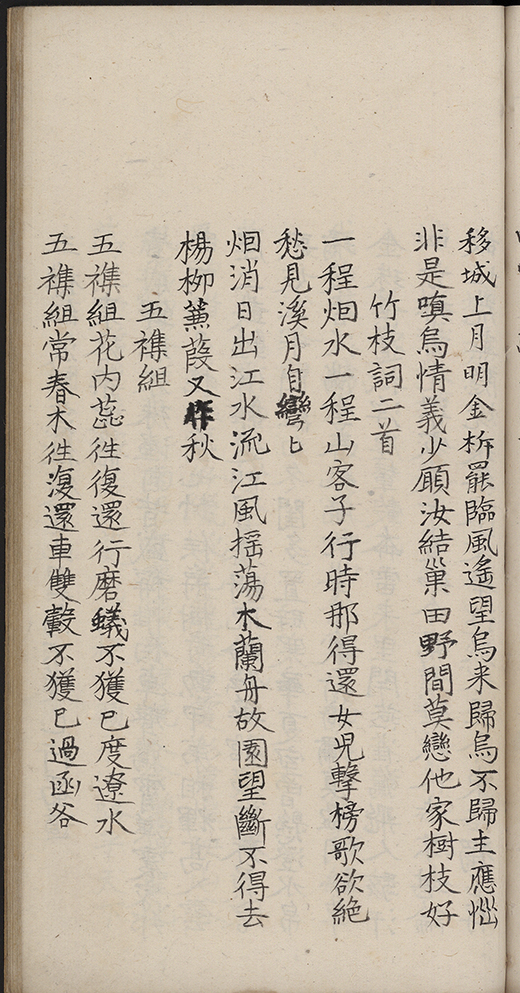 移城上月明金柝罷臨風遙望烏来歸烏不歸主應惱
非是嗔烏情義少願汝結巢田野間莫戀他家樹枝好
竹枝詞二首
一程烟水一程山客子行時那得還女児擊榜歌欲絶
愁見溪月自彎〻
烟消日出江水流江風揺蕩木蘭舟故園望斷不得去
楊柳蒹葭又作秋
五襍組
五襍組花內蕊徃復還行磨蟻不獲已度遼水
五襍組常春木徃復還車雙轂不獲已過函谷